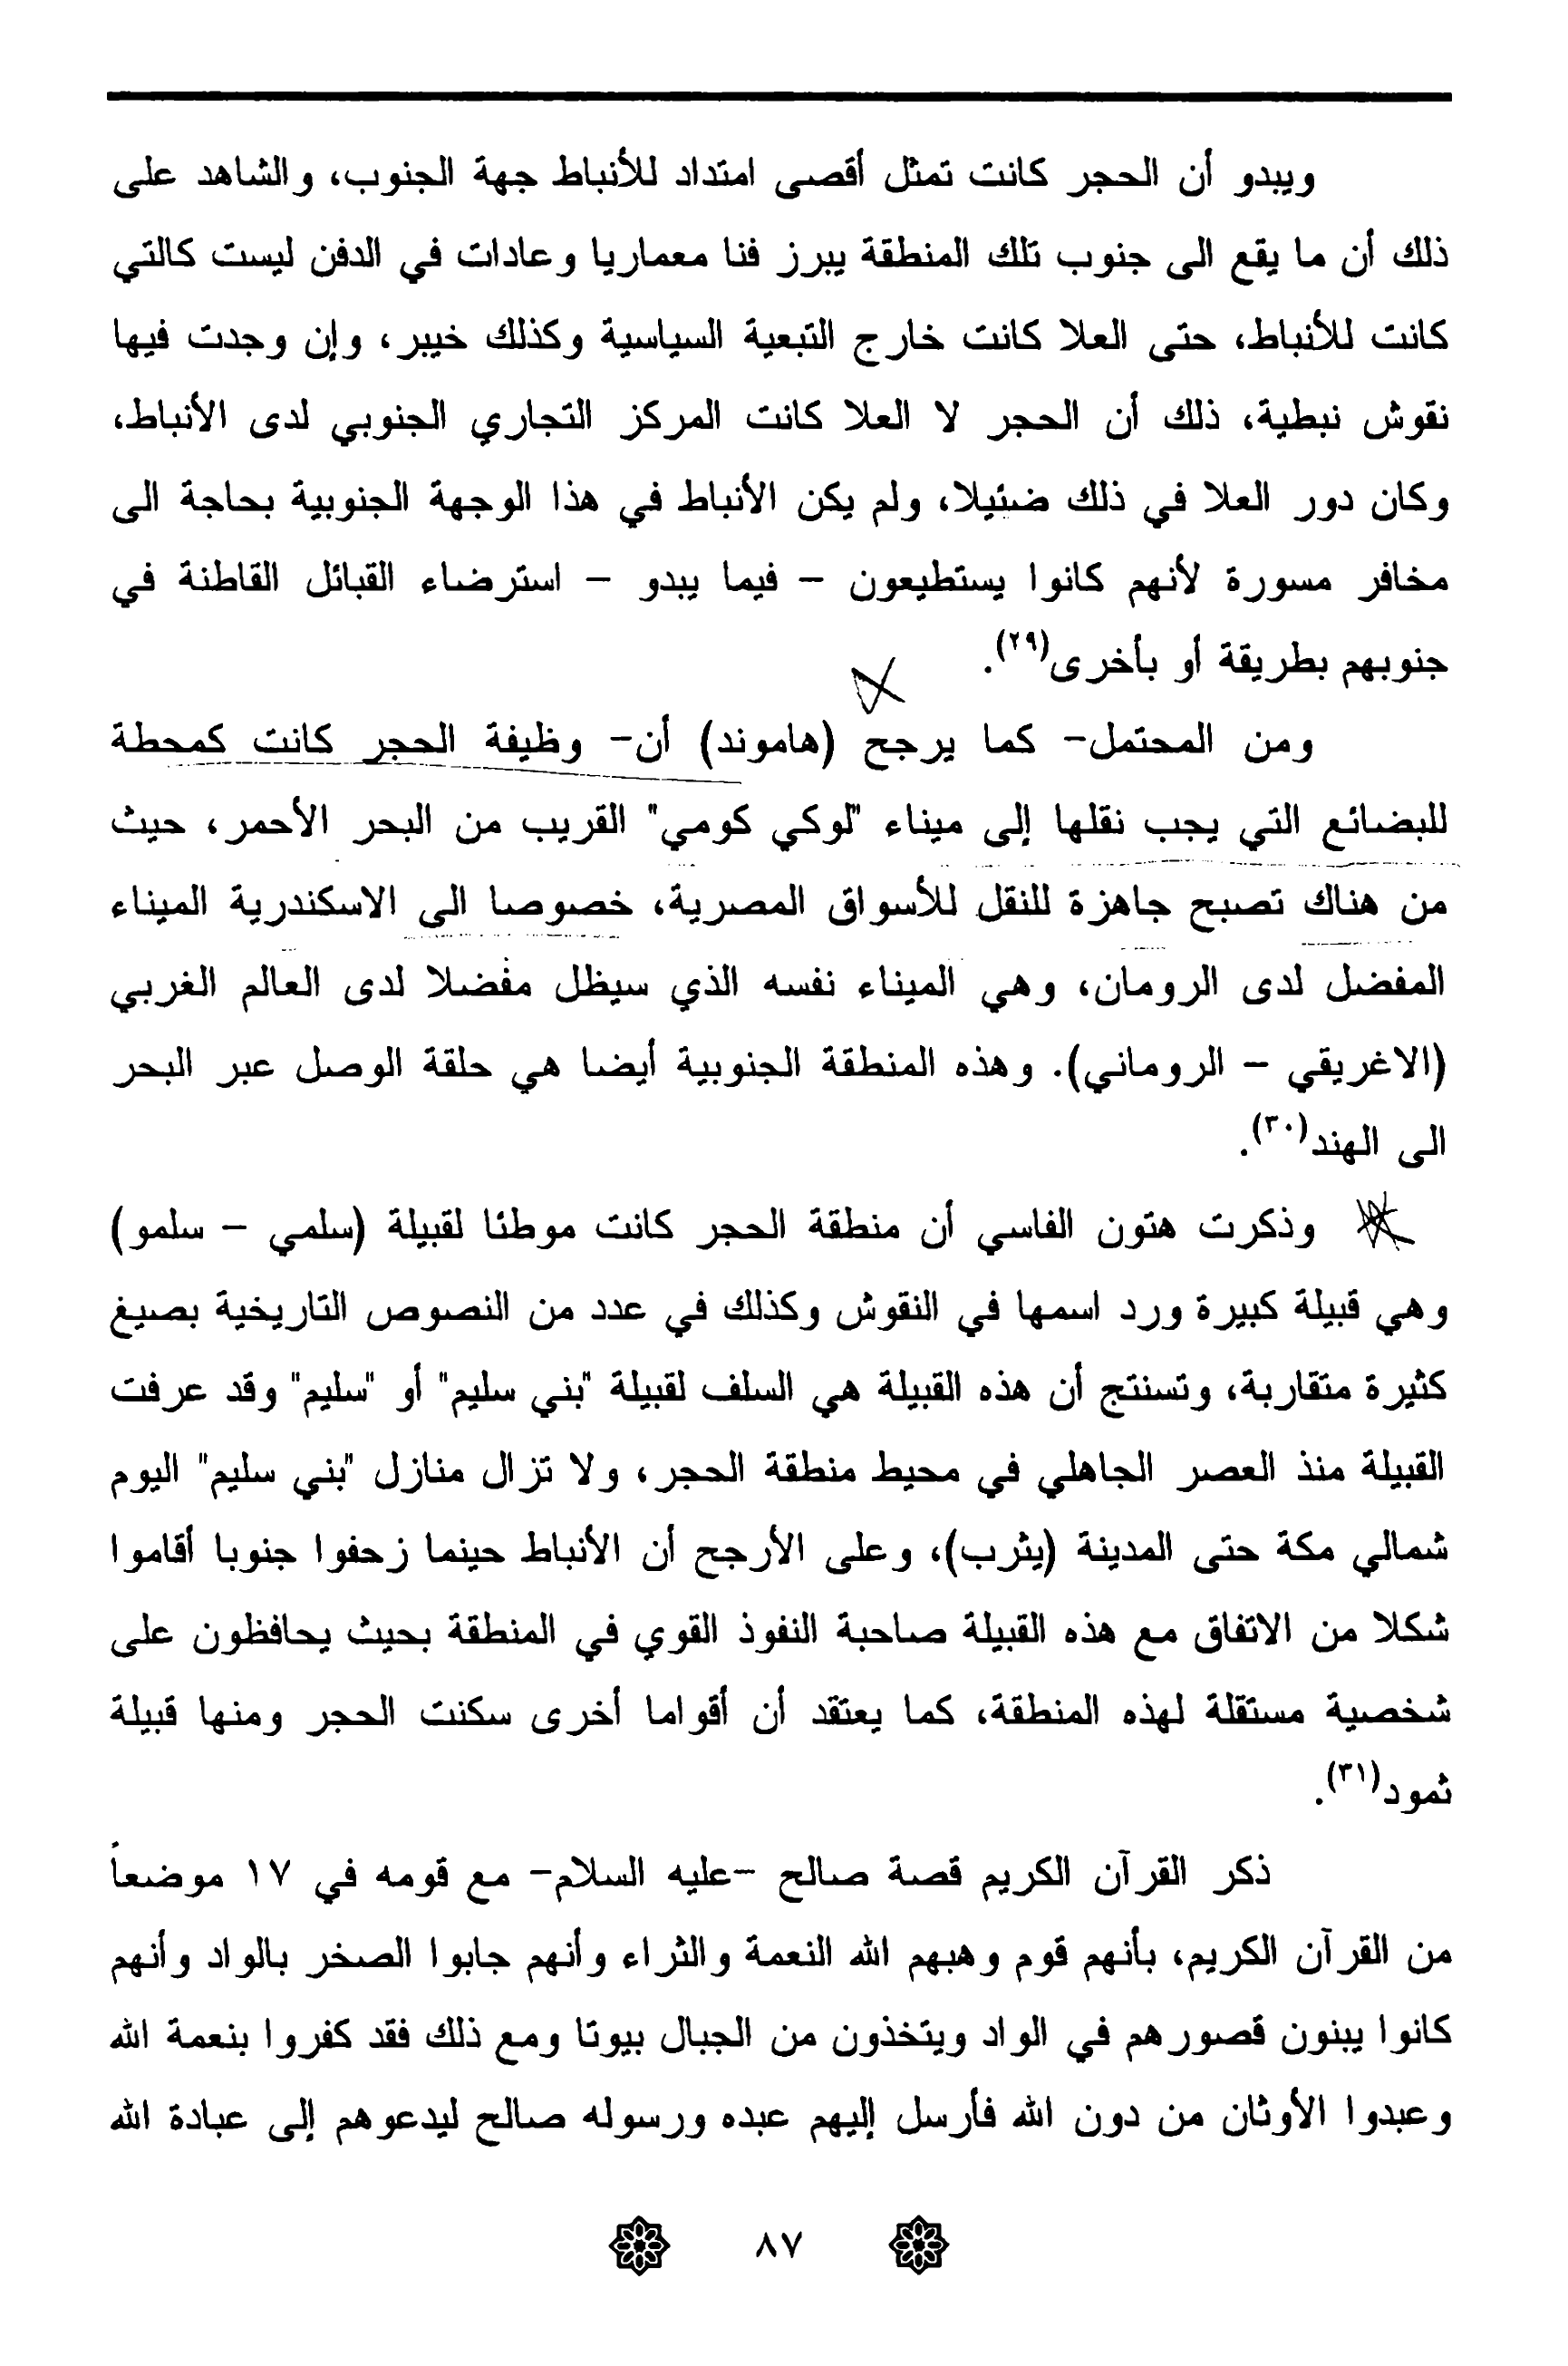 ويبدو أن الحجر كانت تمثل أقصى امتداد للأنباط جهة الجنوب، والشاهد على
ذلك أن ما يقع الى جنوب تلك المنطقة يبرز فنا معماريا وعادات في الدفن ليست كالتي
كانت للأنباط، حتى العلا كانت خارج التبعية السياسية وكذلك خيبر، وإن وجدت فيها
نقوش نبطية، ذلك أن الحجر لا العلا كانت المركز التجاري الجنوبي لدى الأنباط،
وكان دور العلا في ذلك ضئيلا، ولم يكن الأنباط في هذا الوجهة الجنوبية بحاجة الى
مخافر مسورة لأنهم كانوا يستطيعون - فيما يبدو - استرضاء القبائل القاطنة في
جنوبهم بطريقة أو بأخرى(٢٩).
ومن المحتمل- كما يرجح (هاموند) أن- وظيفة الحجر كانت كمحطة
للبضائع التي يجب نقلها إلى ميناء "لوكي كومي" القريب من البحر الأحمر، حيث
من هناك تصبح جاهزة للنقل للأسواق المصرية، خصوصا الى الاسكندرية الميناء
المفضل لدى الرومان، وهي الميناء نفسه الذي سيظل مفضلا لدى العالم الغربي
(الاغريقي - الروماني). وهذه المنطقة الجنوبية أيضا هي حلقة الوصل عبر البحر
الى الهند(٣٠).
وذكرت هتون الفاسي أن منطقة الحجر كانت موطنا لقبيلة (سلمي - سلمو)
وهي قبيلة كبيرة ورد اسمها في النقوش وكذلك في عدد من النصوص التاريخية بصيغ
كثيرة متقاربة، وتسنتج أن هذه القبيلة هي السلف لقبيلة "بني سليم" أو "سليم" وقد عرفت
القبيلة منذ العصر الجاهلي في محيط منطقة الحجر، ولا تزال منازل "بني سليم" اليوم
شمالي مكة حتى المدينة (يثرب)، وعلى الأرجح أن الأنباط حينما زحفوا جنوبا أقاموا
شكلا من الاتفاق مع هذه القبيلة صاحبة النفوذ القوي في المنطقة بحيث يحافظون على
شخصية مستقلة لهذه المنطقة، كما يعتقد أن أقواما أخرى سكنت الحجر ومنها قبيلة
ثمود(٣١).
ذكر القرآن الكريم قصة صالح -عليه السلام- مع قومه في ١٧ موضعاً
من القرآن الكريم، بأنهم قوم وهبهم الله النعمة والثراء وأنهم جابوا الصخر بالواد وأنهم
كانوا يبنون قصورهم في الواد ويتخذون من الجبال بيوتا ومع ذلك فقد كفروا بنعمة الله
وعبدوا الأوثان من دون الله فأرسل إليهم عبده ورسوله صالح ليدعوهم إلى عبادة الله
٨٧